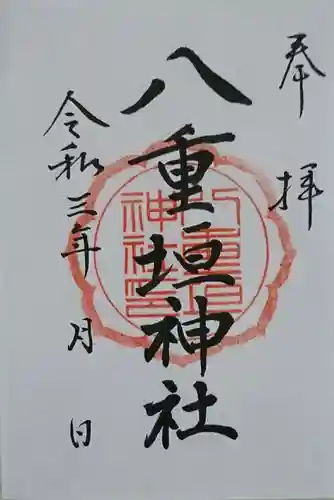 奉拝
八重垣神社
八重垣神社印
令和三年 月 日